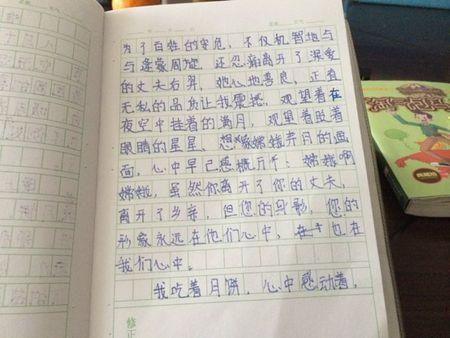 为了百姓的安危，不仅机智地与
与逢蒙周旋，还忍痛离开了深爱
的丈夫后羿，她心地善良，正直
无私的品质让我震撼，观望着在
夜空中挂着的满月，观望着眨着
眼睛的星星，想象嫦娥奔月的画
面，心中早已感概万千：嫦娥啊
嫦娥，虽然你离开了你的丈夫，
离开了乡亲，但您的身影，您的
形象永远在他们心中，也在
我们心中。
我吃着月饼，心中感动着，
修正